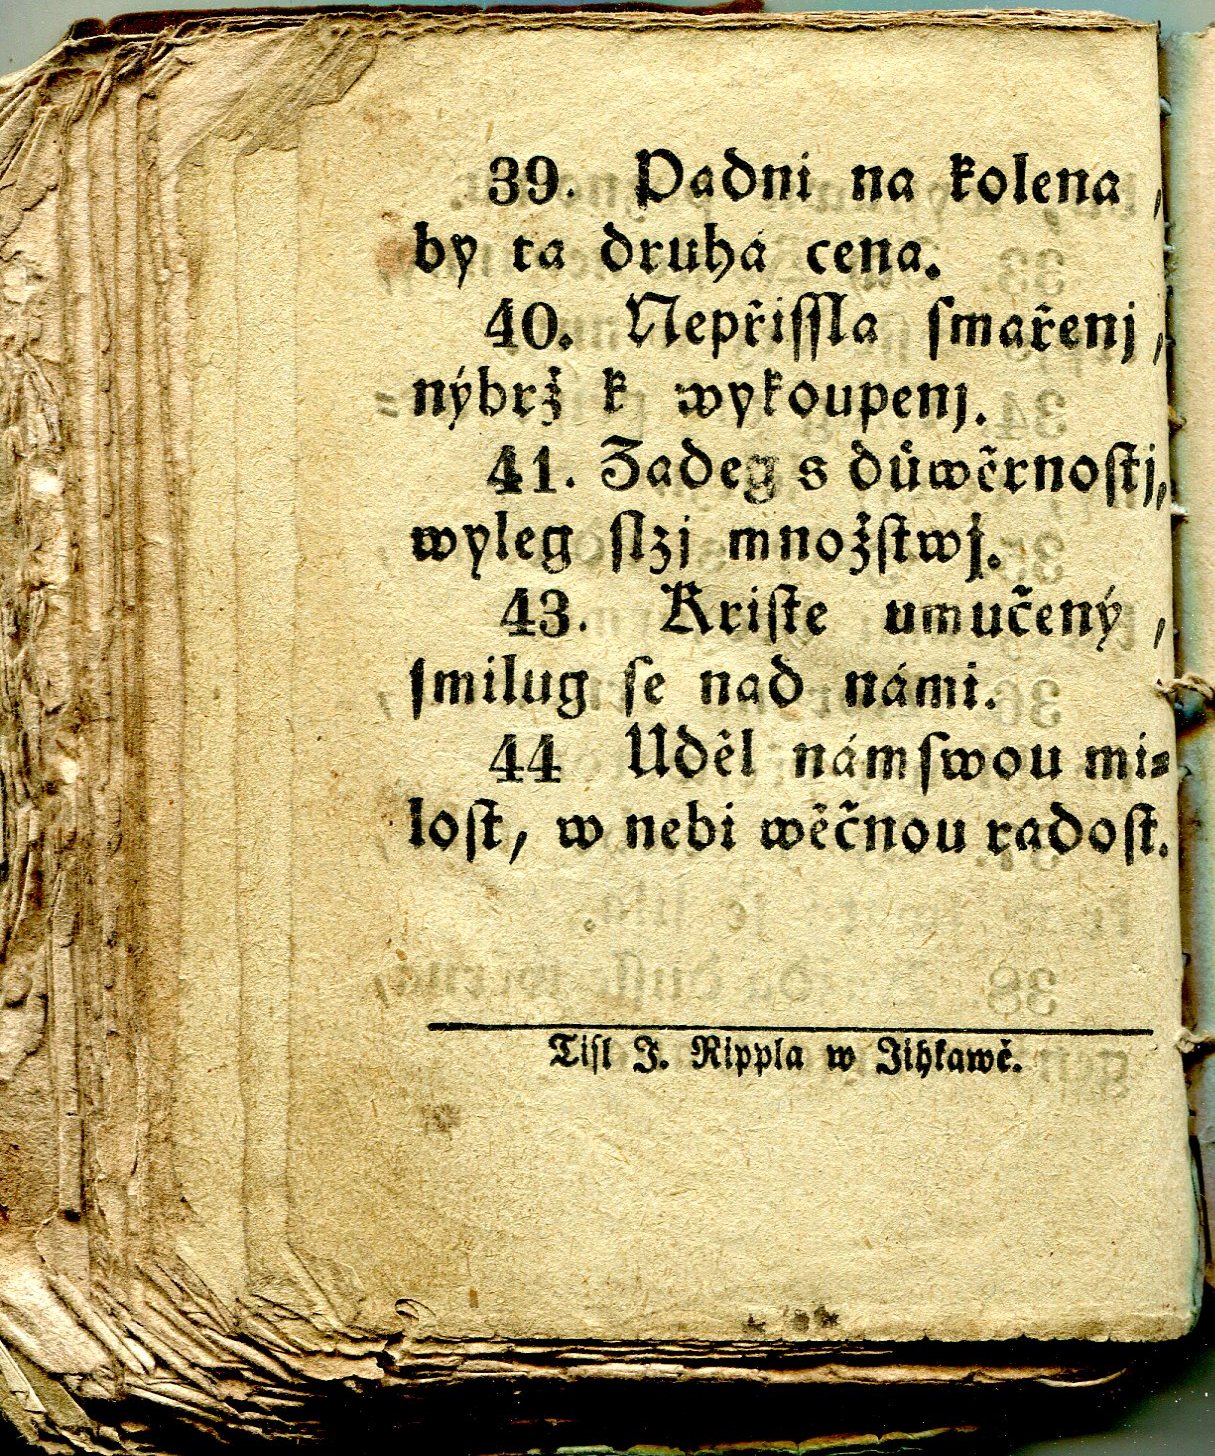 39. Padni na kolena,
by ta druhá cena.
40. Nepřiſſla ſmařenj,
nýbrž k wykoupenj.
41. Žadeg s důwěrnoſtj,
wyleg ſlzj množſtwj.
43. Kriſte umučený,
ſmilug ſe nad námi.
44 Uděl nám ſwou mi=
loſt, w nebi wěčnou radoſt.
Tiſl J. Rippla w Jihkawě.